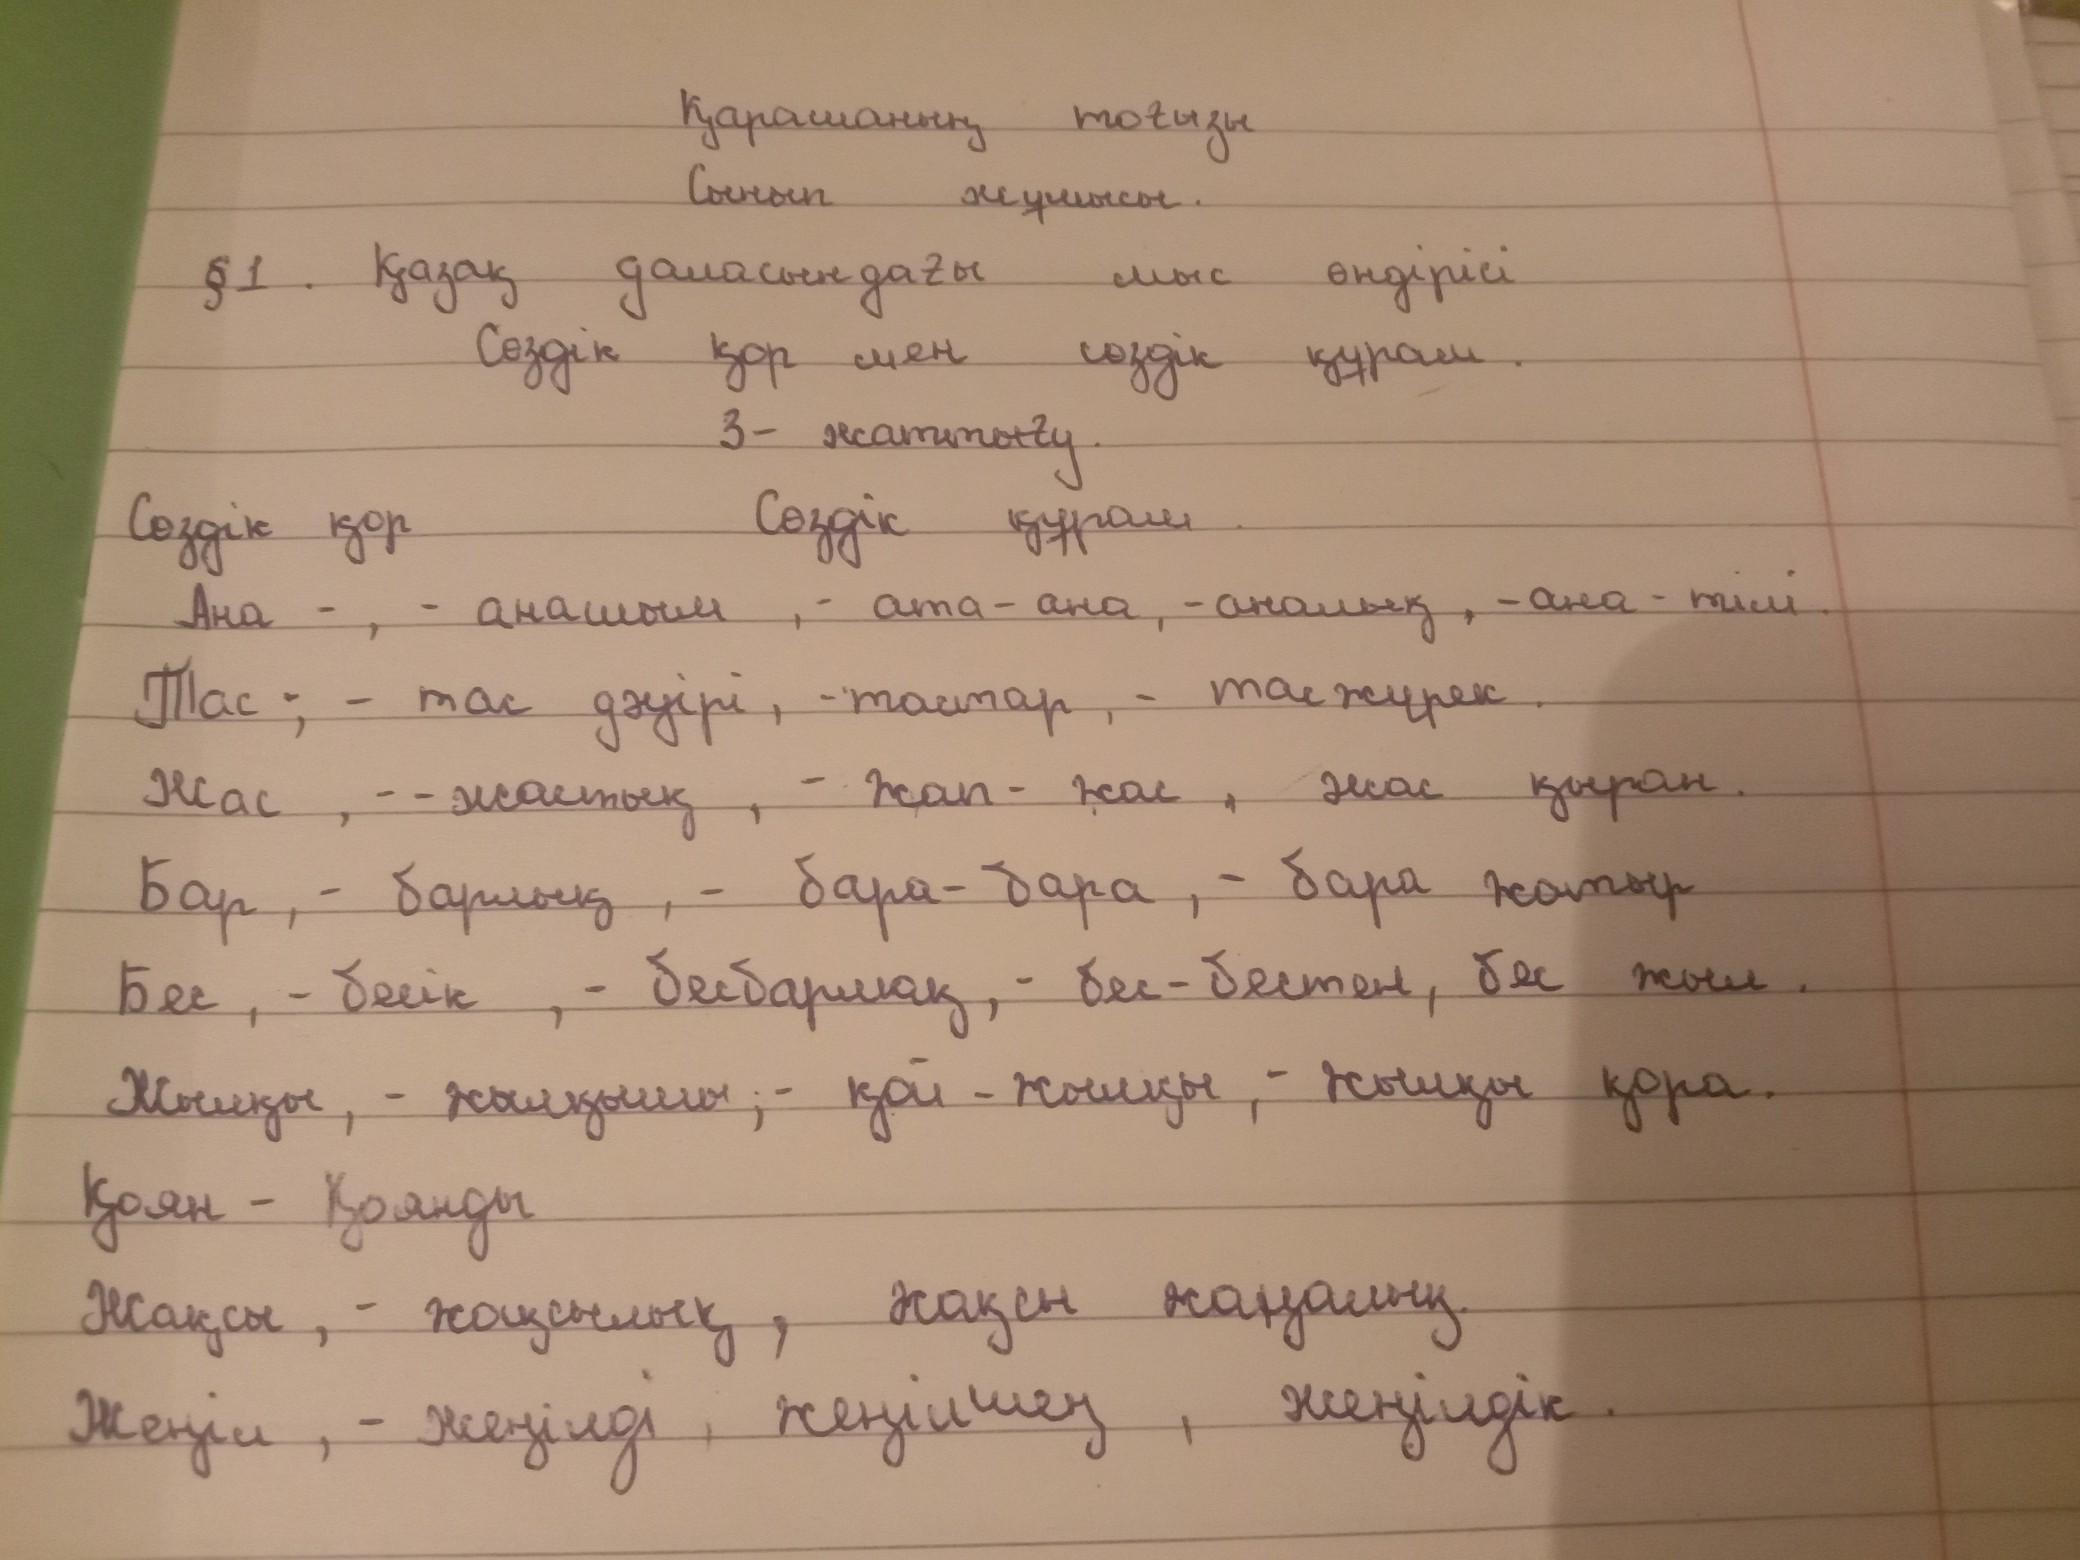 Қарашаның тоғызы
Сынып жұмысы.
§1. Қазақ даласындағы мыс өндірісі
Сөздік қор мен сөздік құрам.
3- жаттығу.
Сөздік қор Сөздік құрам.
Ана -, - анашым, - ата-ана, - аналық, - ана-тілі.
Тас -, - тас дәуірі, - тастар, - тасжүрек.
Жас, - - жастық, - жап-жас, жас қыран.
Бар, - барлық, - бара-бара, - бара жатыр
Бес, - бесік, - бесбармақ, - бес-бестен, бес жыл.
Жылқы, - жылқышы; - қой-жылқы, - жылқы қора.
Қоян - Қоянды
Жақсы, - жақсылық, жақсы жаңалық.
Жеңіл, - жеңілді, жеңілшең, жеңілдік.